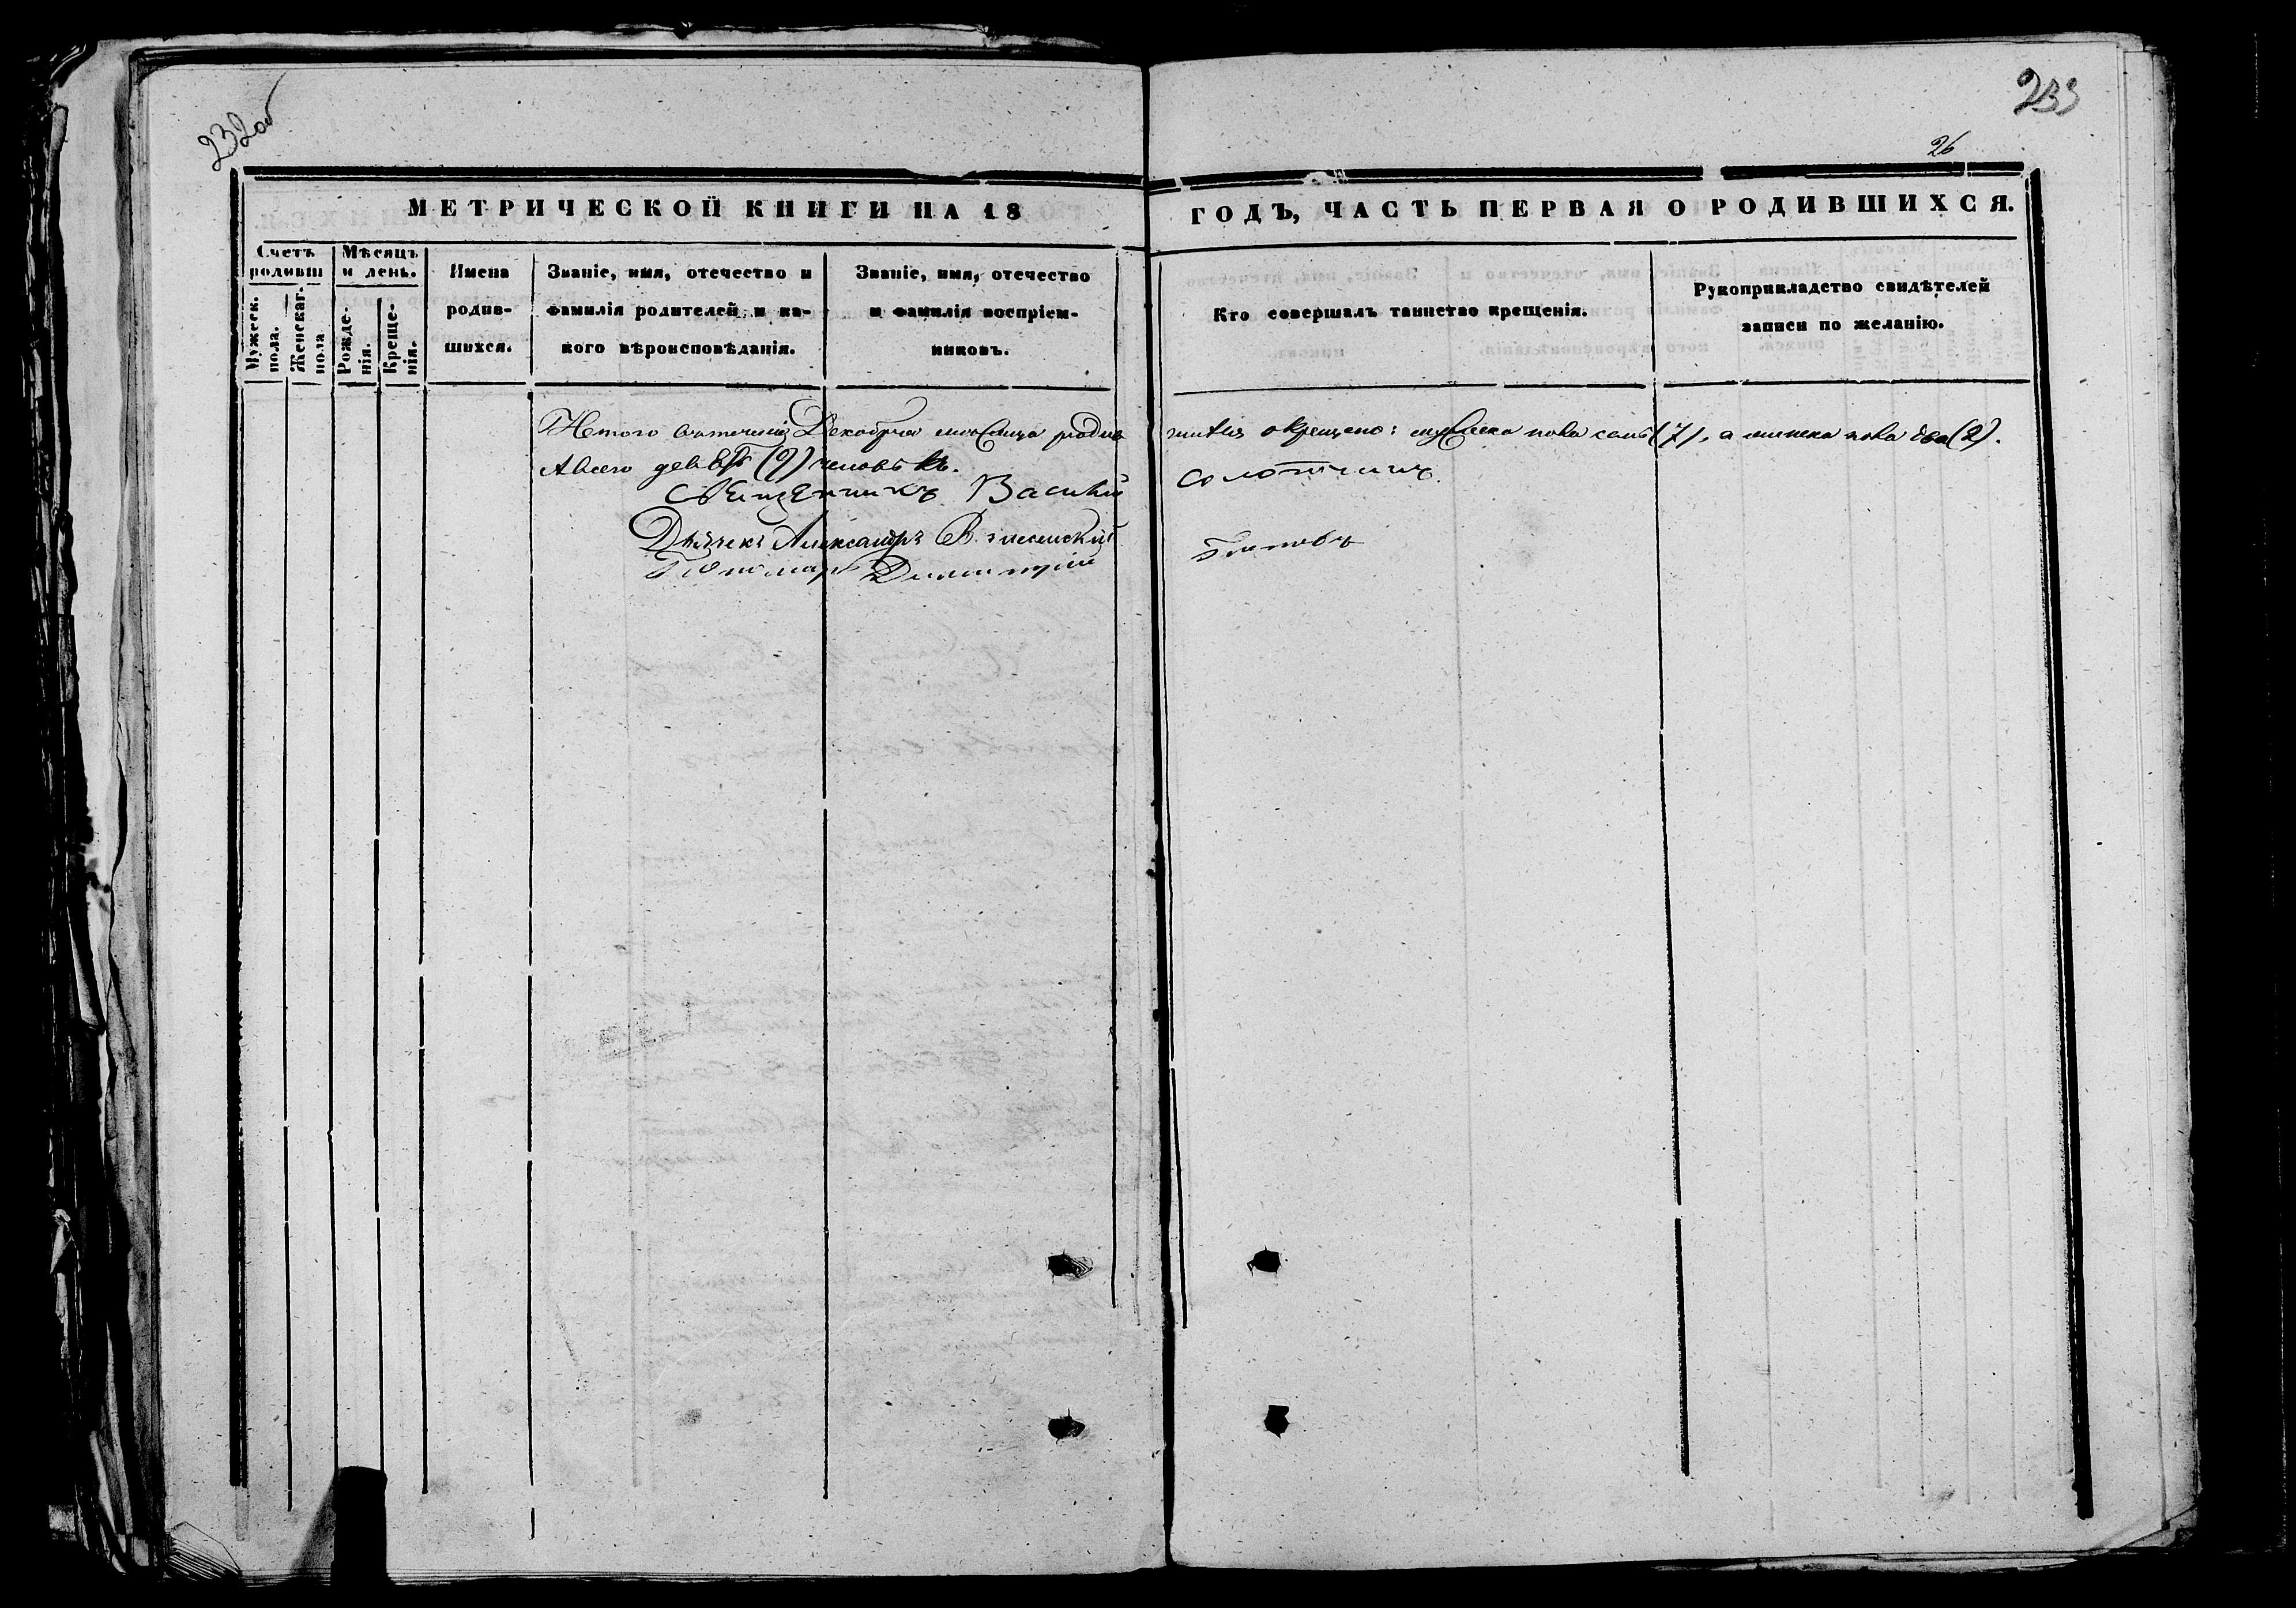 232об
233
26
МЕТРИЧЕСКОЙ КНИГИ НА 18 ГОДЪ, ЧАСТЬ ПЕРВАЯ О РОДИВШИХСЯ.
Счетъ родивш
Мужеск. пола.
Женскаг. пола
Мѣсяцъ и день.
Рожде-
нія.
Креще-
нія.
Имена
родив-
шихся.
Званіе, имя, отечество и
фамилія родителей, и ка-
кого вѣроисповѣданія.
Званіе, имя, отечество
и фамилія воспріем-
никовъ.
Кто совершалъ таинство крещенія.
Рукоприкладство свидѣтелей
записи по желанію.
Декабря месяца родив шихся окрещено: мужеска пола семь (7), а женска пола два (2).
А всего девять (9) человѣкъ.
Священникъ Василій Солотчинъ.
Дьячекъ Александръ Вознесенскій
Пономарь Димитрій